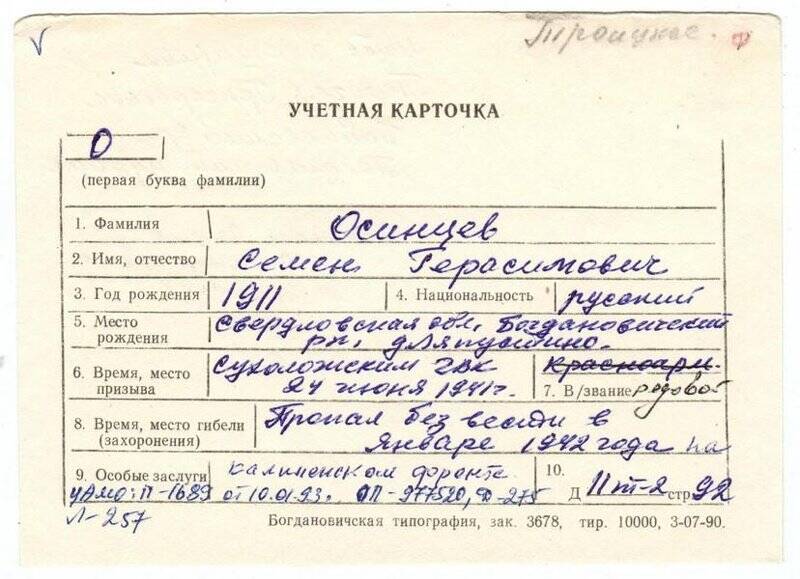 V
Троицкое.
УЧЕТНАЯ КАРТОЧКА
О
(первая буква фамилии)
1. Фамилия Осинцев
2. Имя, отчество Семен Герасимович
3. Год рождения 1911 4. Национальность русский
5. Место рождения Свердловская обл, Богдановичский
рн, д Ляпустино.
6. Время, место призыва Сухоложским гвк
24 июня 1941г. Красноарм.
7. В/звание рядовой
8. Время, место гибели (захоронения) Пропал без вести в
январе 1942 года на
9. Особые заслуги калиненском фронте. 10.
ЦАМО: П-1689 от 10.01.93г. ОП-977520, Ф-275 Д 11 т-2 стр 92
Л-257
Богдановичская типография, зак. 3678, тир. 10000, 3-07-90.